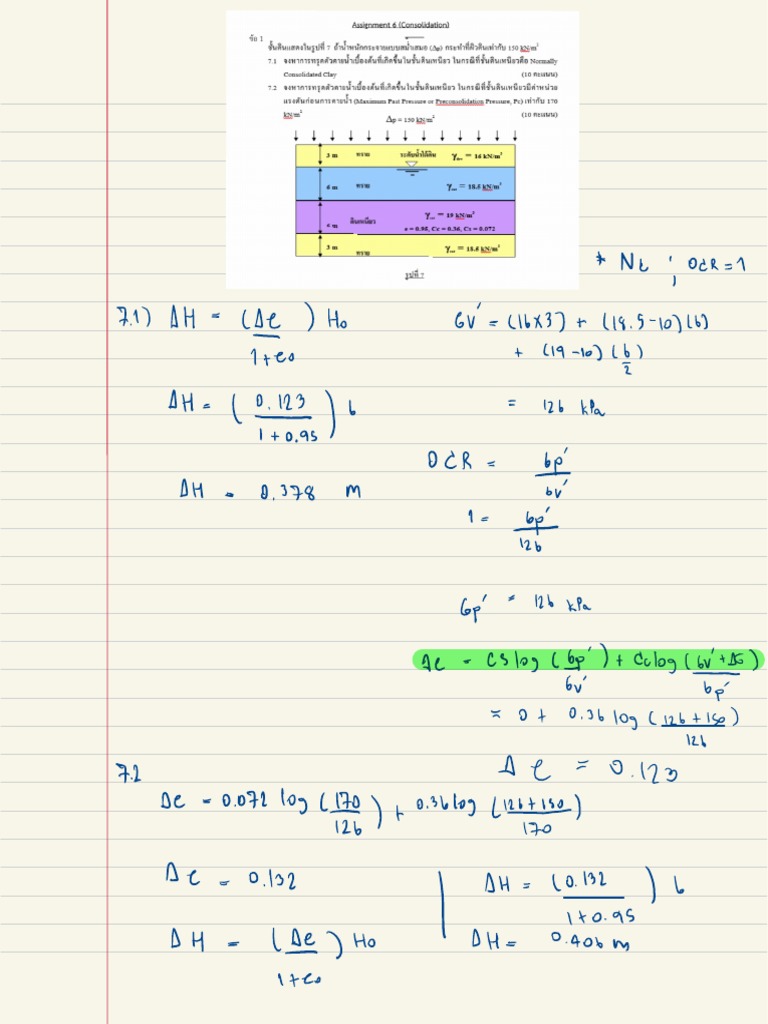 Assignment 6 (Consolidation)
ข้อ 1
ชั้นดินแสดงในรูปที่ 7 ถ้าน้ำหนักกระจายแบบสม่ำเสมอ (Δp) กระทำที่ผิวดินเท่ากับ 150 kN/m²
7.1 จงหาการทรุดตัวคายน้ำเบื้องต้นที่เกิดขึ้นในชั้นดินเหนียว ในกรณีที่ชั้นดินเหนียวคือ Normally
Consolidated Clay (10 คะแนน)
7.2 จงหาการทรุดตัวคายน้ำเบื้องต้นที่เกิดขึ้นในชั้นดินเหนียว ในกรณีที่ชั้นดินเหนียวมีค่าหน่วย
แรงดันก่อนการคายน้ำ (Maximum Past Pressure or Preconsolidation Pressure, Pc) เท่ากับ 170
kN/m² (10 คะแนน)
Δp = 150 kN/m²
3 m ทราย ระดับน้ำใต้ดิน γdry = 16 kN/m³
6 m ทราย γsat = 18.5 kN/m³
6 m ดินเหนียว γsat = 19 kN/m³
e = 0.95, Cc = 0.36, Cs = 0.072
3 m ทราย γsat = 18.5 kN/m³
รูปที่ 7
* Nc ; OCR = 1
7.1) ΔH = (Δe / 1+e0) H0
σv' = (16x3) + (18.5-10)(6)
+ (19-10)(6/2)
ΔH = (0.123 / 1+0.95) 6
= 126 kPa
ΔH = 0.378 m
OCR = σp' / σv'
1 = σp' / 126
σp' = 126 kPa
Δe = Cs log (σp' / σv') + Cc log (σv' + Δσ / σp')
= 0 + 0.36 log (126+150 / 126)
Δe = 0.123
7.2
Δe = 0.072 log (170 / 126) + 0.36 log (126+150 / 170)
Δe = 0.132
ΔH = (Δe / 1+e0) H0
ΔH = (0.132 / 1+0.95) 6
ΔH = 0.406 m